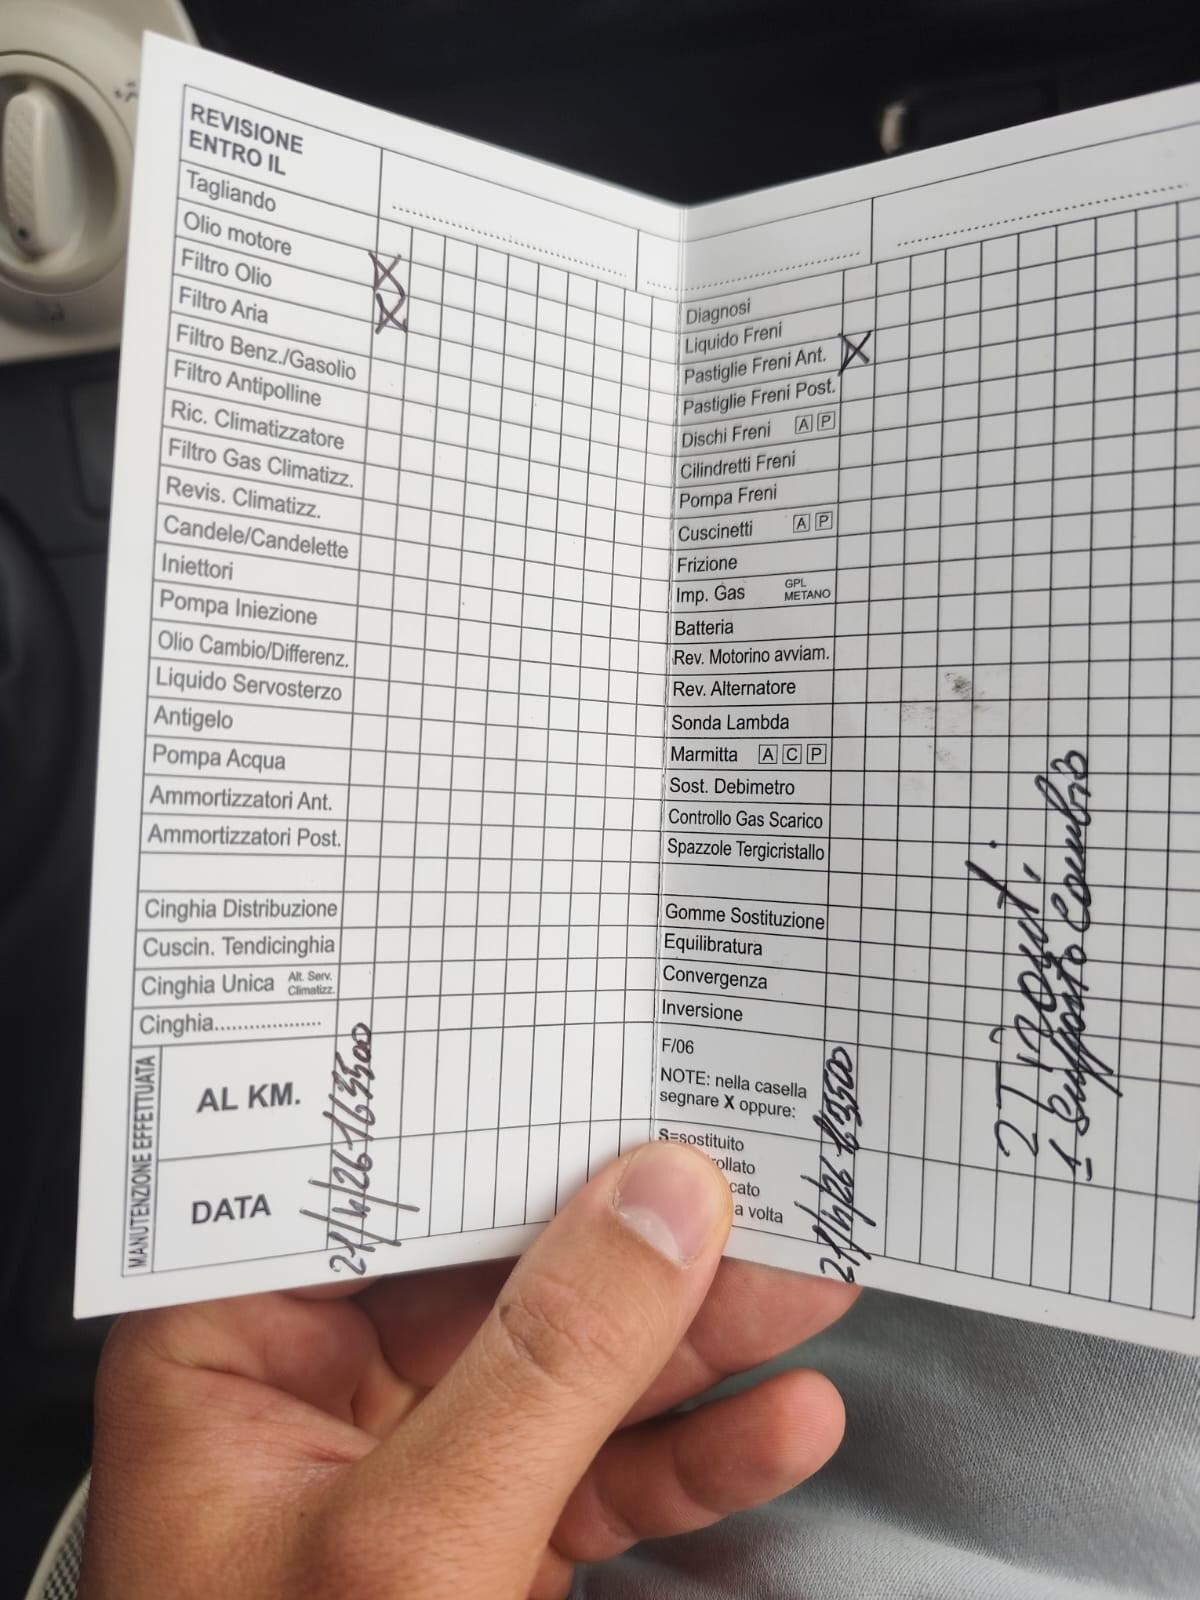 REVISIONE
ENTRO IL
Tagliando
Olio motore
Filtro Olio
Filtro Aria
Filtro Benz./Gasolio
Filtro Antipolline
Ric. Climatizzatore
Filtro Gas Climatizz.
Revis. Climatizz.
Candele/Candelette
Iniettori
Pompa Iniezione
Olio Cambio/Differenz.
Liquido Servosterzo
Antigelo
Pompa Acqua
Ammortizzatori Ant.
Ammortizzatori Post.
Cinghia Distribuzione
Cuscin. Tendicinghia
Cinghia Unica Alt. Serv. Climatizz.
Cinghia....................
MANUTENZIONE EFFETTUATA
AL KM.
DATA
X
X
Diagnosi
Liquido Freni
Pastiglie Freni Ant. X
Pastiglie Freni Post.
Dischi Freni A P
Cilindretti Freni
Pompa Freni
Cuscinetti A P
Frizione
Imp. Gas GPL METANO
Batteria
Rev. Motorino avviam.
Rev. Alternatore
Sonda Lambda
Marmitta A C P
Sost. Debimetro
Controllo Gas Scarico
Spazzole Tergicristallo
Gomme Sostituzione
Equilibratura
Convergenza
Inversione
F/06
NOTE: nella casella
segnare X oppure:
S=sostituito
rollato
cato
a volta
2 Tiranti
1 Supporto Cambio